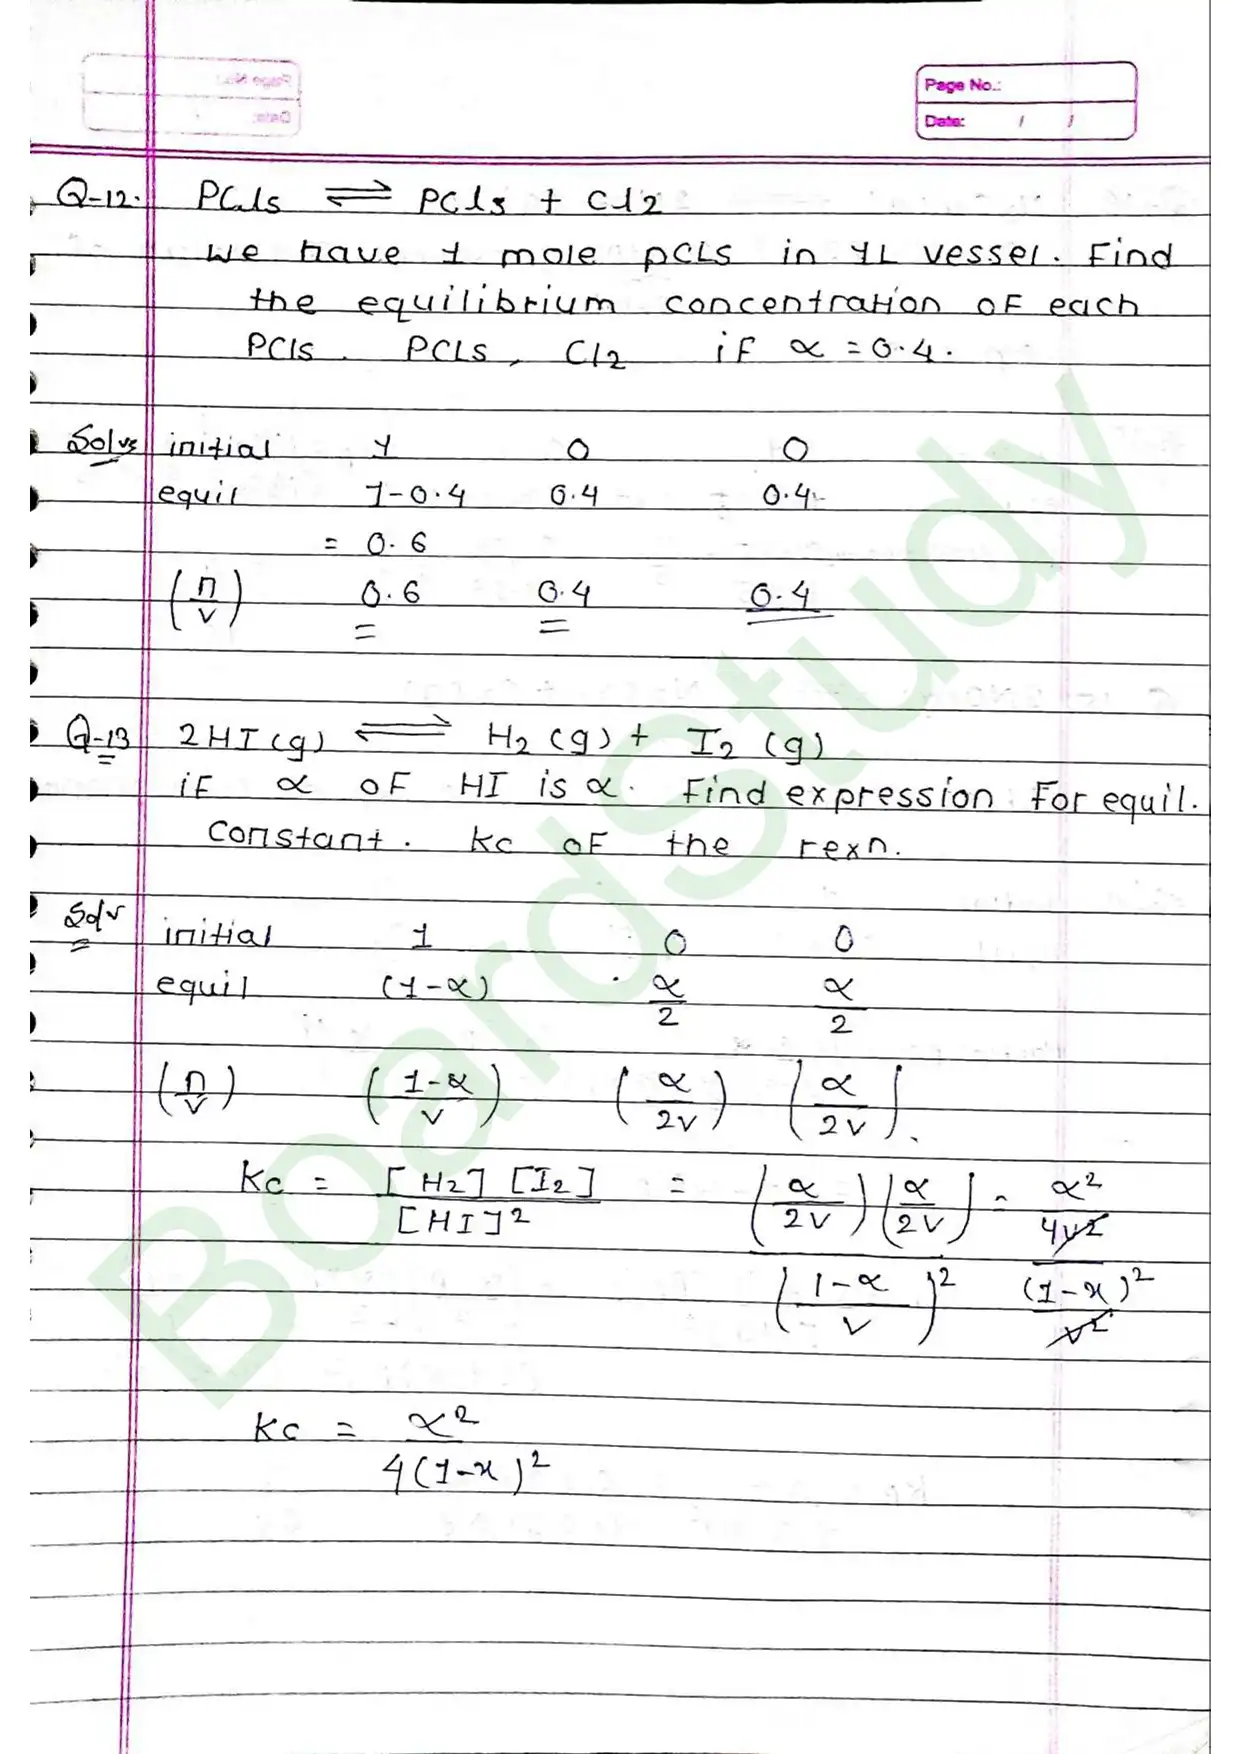 Page No.:
Date: / /
Q-12. PCl5 ⇌ PCl3 + Cl2
we have 1 mole PCL5 in 1L vessel. Find
the equilibrium concentration of each
PCl5. PCL3, Cl2 if α = 0.4.
Solv initial 1 0 0
equil 1-0.4 0.4 0.4
= 0.6
(n/v) 0.6 0.4 0.4
Q-13 2HI(g) ⇌ H2(g) + I2(g)
if α of HI is α. Find expression for equil.
constant. Kc of the rexn.
Solv initial 1 0 0
equil (1-α) α/2 α/2
(n/v) ((1-α)/v) (α/2v) (α/2v).
Kc = [H2][I2]/[HI]2 = (α/2v)(α/2v)/((1-α)/v)2 = (α2/4v2)/((1-x)2/v2)
Kc = α2/4(1-x)2
BoardStudy